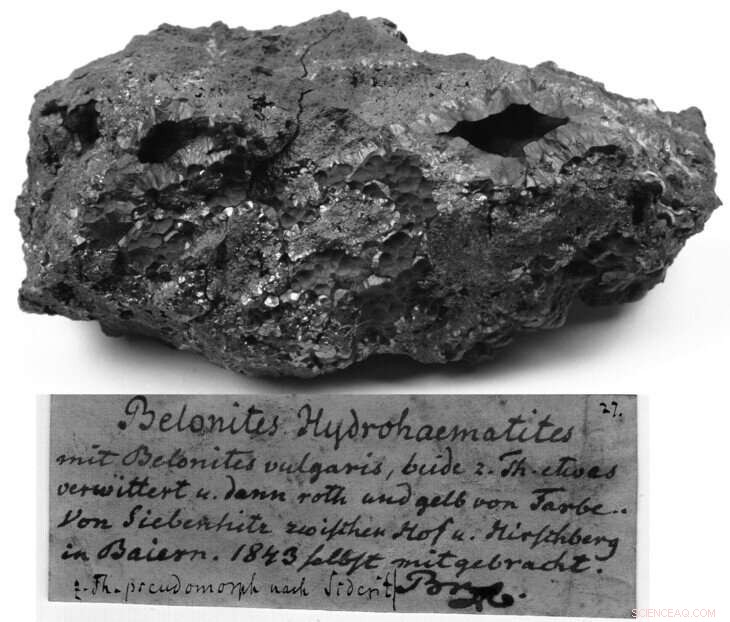 27.
Belonites Hydrohaematites
mit Belonites vulgaris, beide z. Th. etwas
verwittert u. dann roth und gelb von Farbe..
Von Siebenhitz zwischen Hof u. Hirschberg
in Baiern. 1843 selbst mitgebracht.
z. Th. pseudomorph nach Siderit
SCIENCEAQ.COM